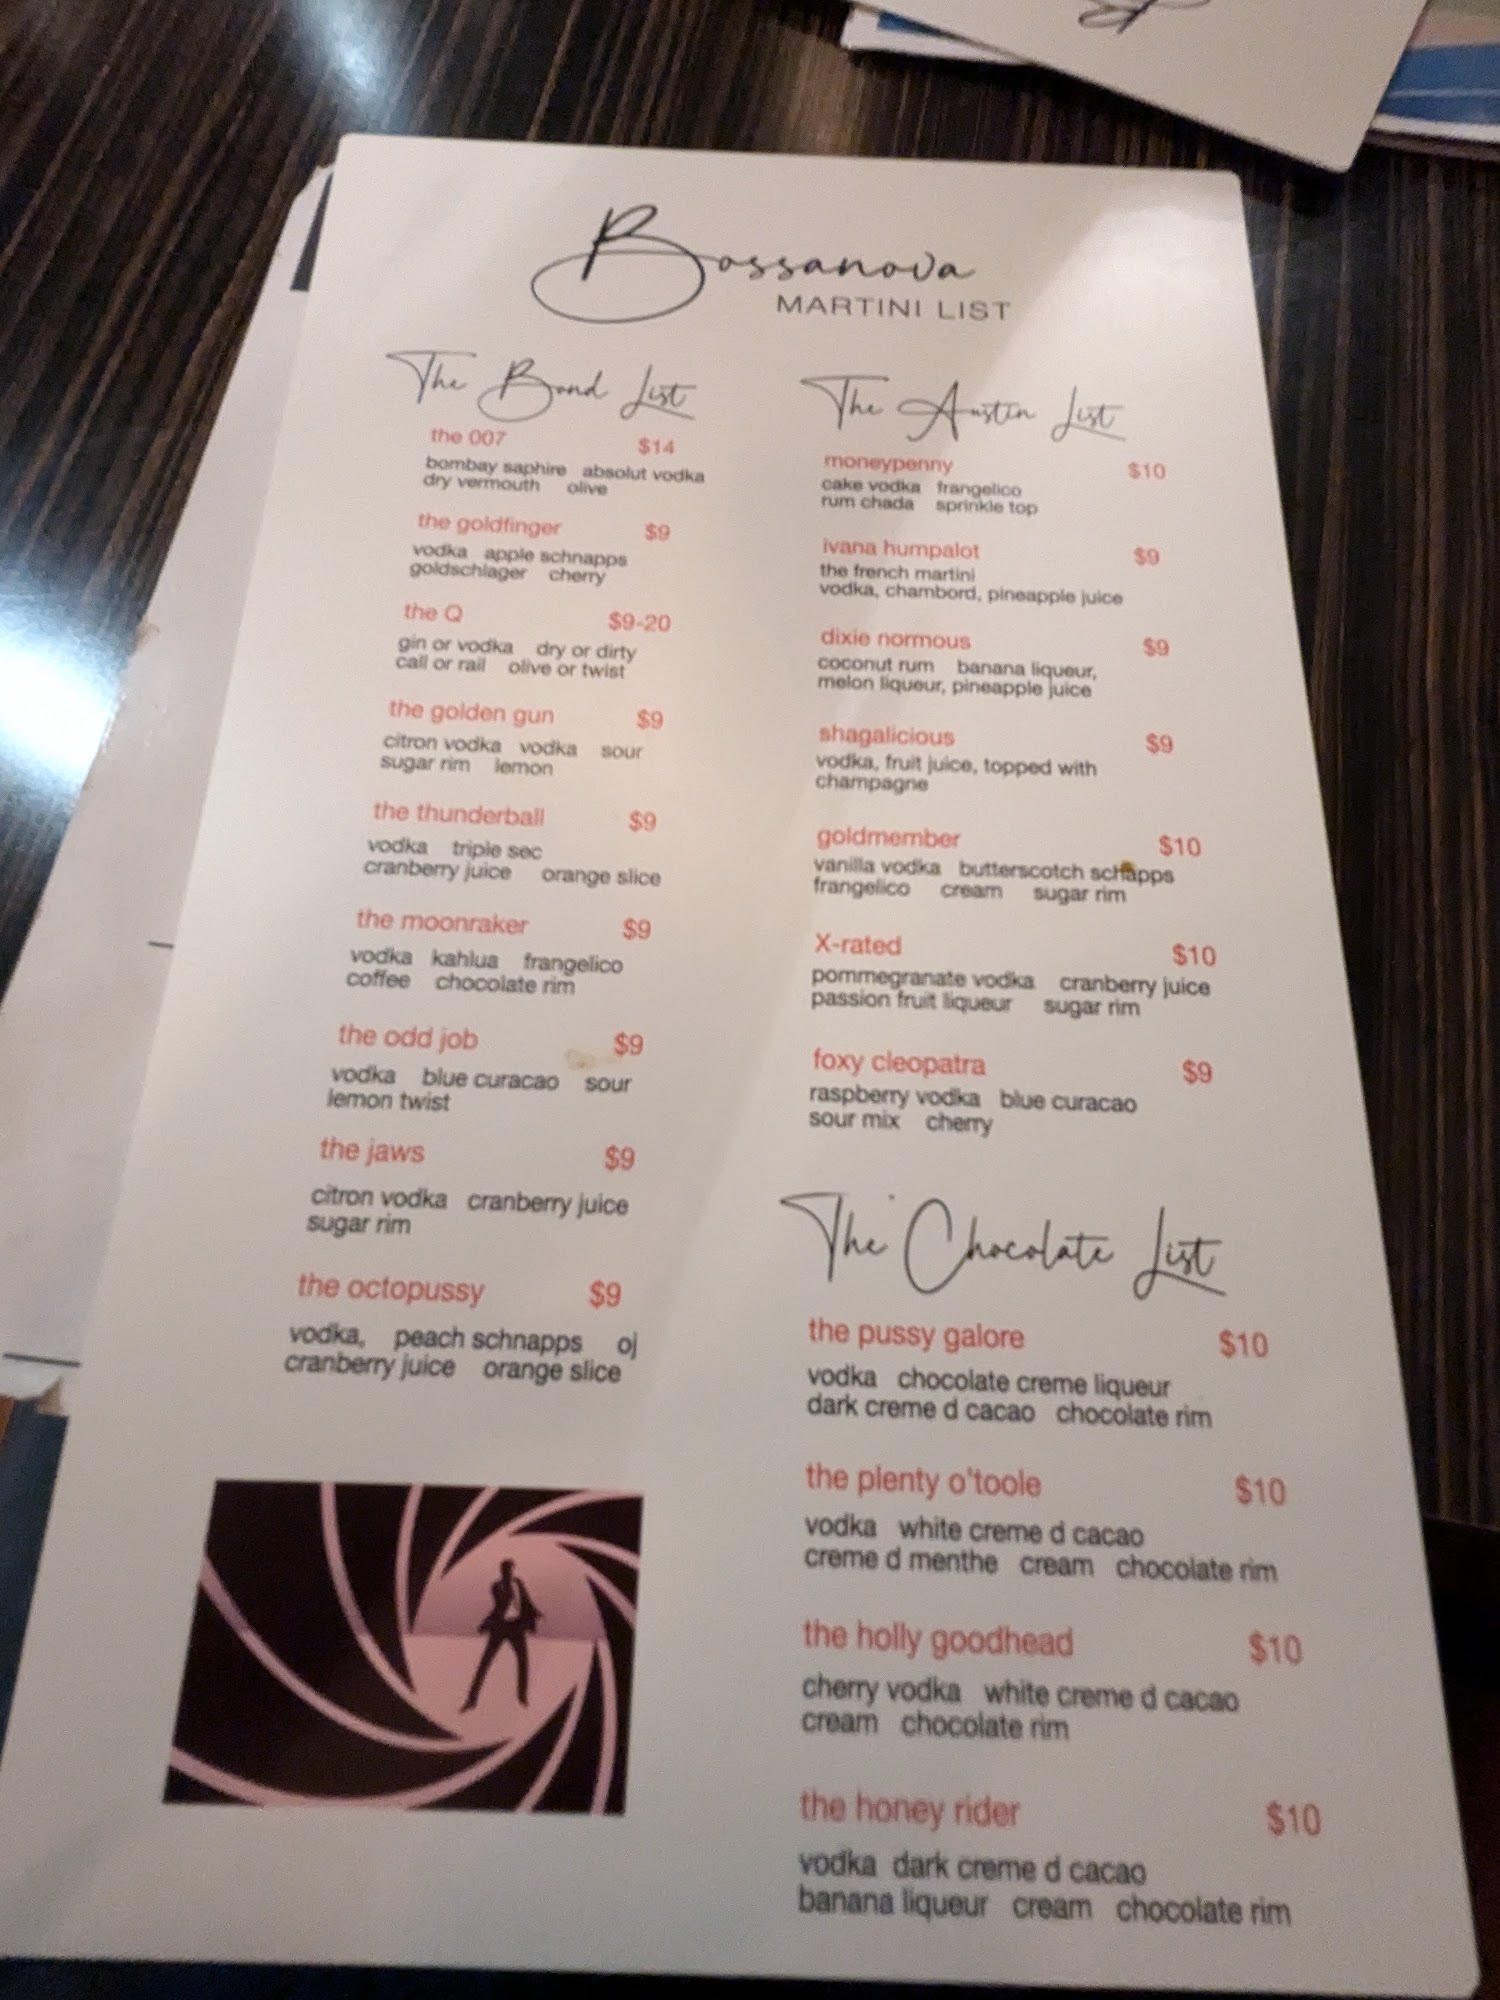 Bossanova
MARTINI LIST
The Bond List
the 007 $14
bombay saphire absolut vodka
dry vermouth olive
the goldfinger $9
vodka apple schnapps
goldschlager cherry
the Q $9-20
gin or vodka dry or dirty
call or rail olive or twist
the golden gun $9
citron vodka vodka sour
sugar rim lemon
the thunderball $9
vodka triple sec
cranberry juice orange slice
the moonraker $9
vodka kahlua frangelico
coffee chocolate rim
the odd job $9
vodka blue curacao sour
lemon twist
the jaws $9
citron vodka cranberry juice
sugar rim
the octopussy $9
vodka, peach schnapps oj
cranberry juice orange slice
The Austin List
moneypenny $10
cake vodka frangelico
rum chada sprinkle top
ivana humpalot $9
the french martini
vodka, chambord, pineapple juice
dixie normous $9
coconut rum banana liqueur,
melon liqueur, pineapple juice
shagalicious $9
vodka, fruit juice, topped with
champagne
goldmember $10
vanilla vodka butterscotch schapps
frangelico cream sugar rim
X-rated $10
pommegranate vodka cranberry juice
passion fruit liqueur sugar rim
foxy cleopatra $9
raspberry vodka blue curacao
sour mix cherry
The Chocolate List
the pussy galore $10
vodka chocolate creme liqueur
dark creme d cacao chocolate rim
the plenty o'toole $10
vodka white creme d cacao
creme d menthe cream chocolate rim
the holly goodhead $10
cherry vodka white creme d cacao
cream chocolate rim
the honey rider $10
vodka dark creme d cacao
banana liqueur cream chocolate rim